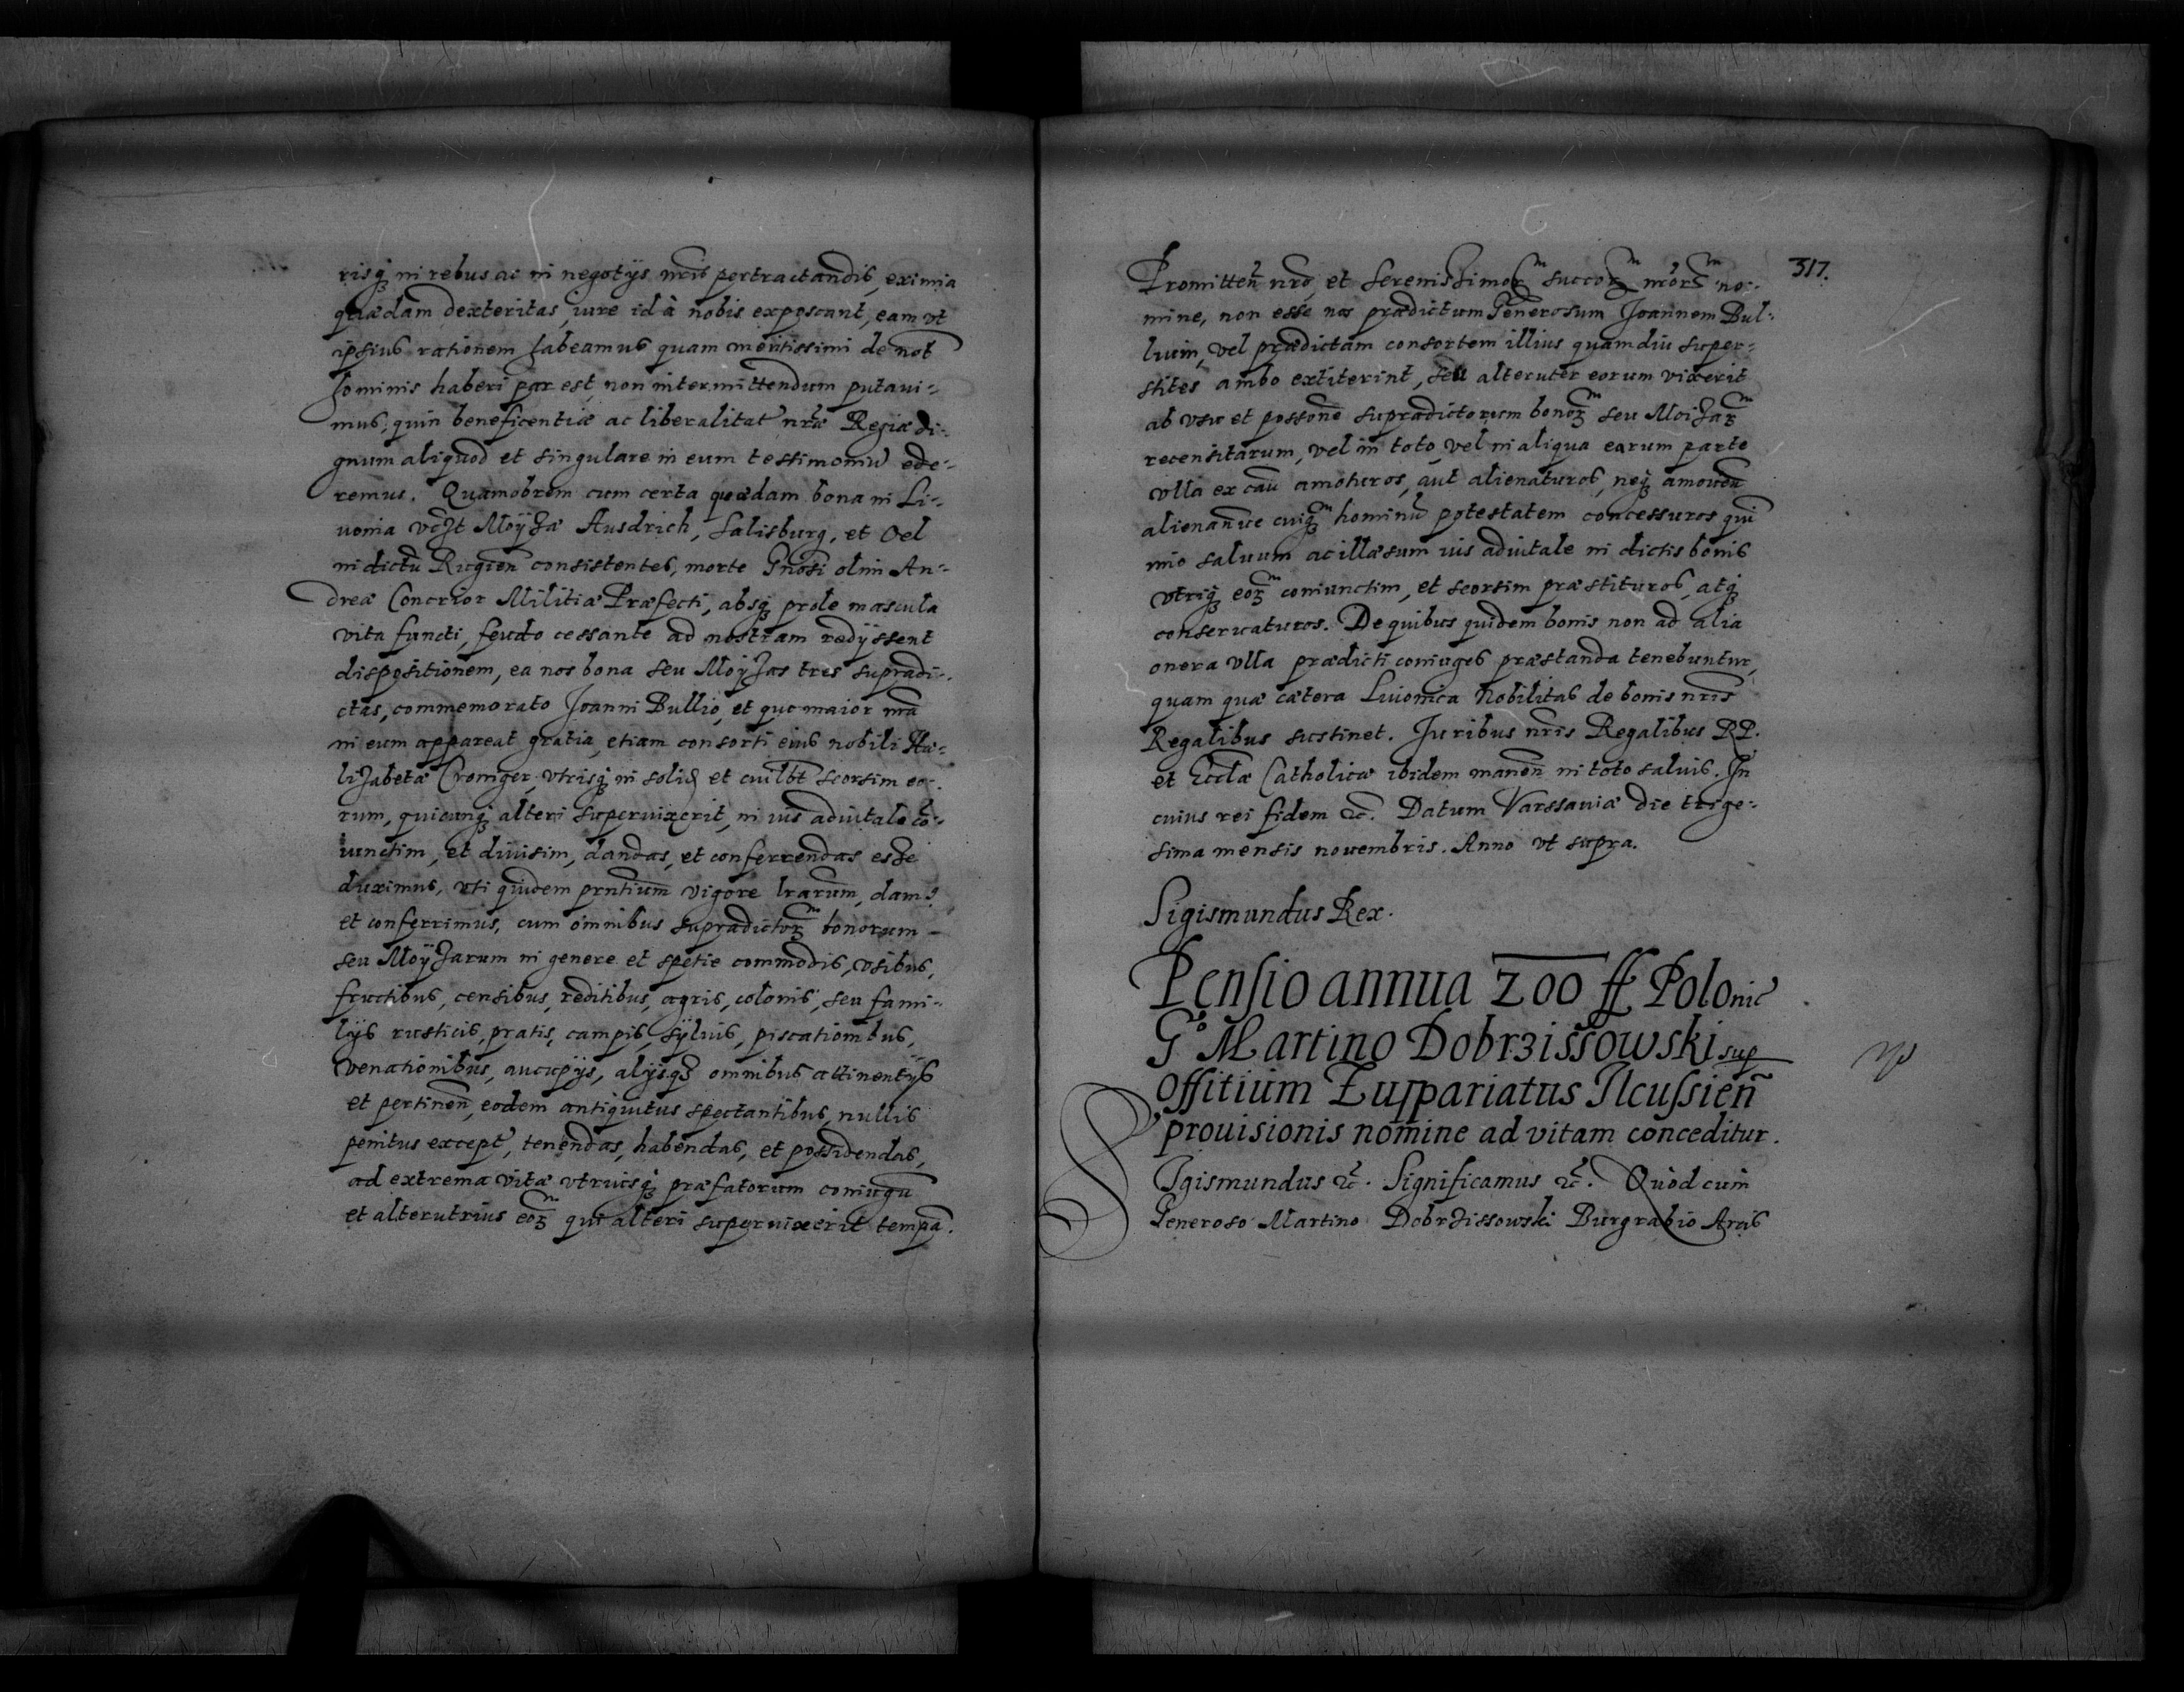 risq; in rebus ac in negotijs nris pertractandis, eximia
quædam dexteritas, iure id à nobis exposcant, eam vt
ipsius rationem habeamus quam meritissimi de nob
hominis haberi par est, non intermittendum putaui-
mus, quin beneficentiæ ac liberalitat nræ Regiæ di-
gnum aliquod et singulare in eum testimoniu ede-
remus. Quamobrem cum certa quædam bona in Li-
uonia vczt Moyzæ Ausdrich, Salisburg, et Oel
in dictu Rugien consistentes, morte Gnosi olim An-
dreæ Militiæ Præfecti, absq; prole mascula
vita functi, feudo cessante ad nostram redyssent
dispositionem, ea nos bona seu Moyzas tres supradi-
ctas, commemorato Joanni Bullio, et quo maior nra
in eum appareat gratia, etiam consorti eius nobili
lizabetæ Croniger, vtrisq; in solid et cuilbt seorsim eo-
rum, quicunq; alteri superuixerit, in ius aduitale co-
iunctim, et diuisim, dandas, et conferrendas esse
duximus, vti quidem prntium vigore lrarum, dam9
et conferrimus, cum omnibus supradictor bonorum
seu Moyzarum in genere et spetie commodis, vsibus,
fructibus, censibus, reditibus, agris, colonis, seu fami-
lijs rusticis, pratis, campis, syluis, piscationibus,
venationibus, aucupijs, alijsq3 omnibus attinentijs
et pertinen, eodem antiquitus spectantibus, nullis
penitus except, tenendas, habendas, et possidendas,
ad extrema vitæ vtriusq; præfatorum coniugu
et alterutrius eor qui alteri superuixerit tempa.
317.
Promitten nro, et Serenissimor succor nror no-
mine, non esse nos prædictum Generosum Joannem Bul-
luim, vel prædictam consortem illius quamdiu super-
stites ambo extiterint, seu alteruter eorum vixerit
ab vsu et possone supradictorum bonor seu Moizar
recensitarum, vel in toto, vel in aliqua earum parte
vlla ex cau amoturos, aut alienaturos, neq; amouen
alienanue cuiq; hominu potestatem concessuros qui
imo saluum ac illæsum ius aduitale in dictis bonis
vtriq; eor coniunctim, et seorsim præstituros, atq;
conseruaturos. De quibus quidem bonis non ad alia
onera vlla prædicti coniuges præstanda tenebuntur,
quam quæ cætera Liuonica Nobilitas de bonis nris
Regalibus sustinet. Juribus nris Regalibus RP.
et Eccla Catholicæ ibidem manen in toto saluis. In
cuius rei fidem &c. Datum Varssauiæ die trige-
sima mensis nouembris. Anno vt supra.
Sigismundus Rex.
Pensio annua 200 ff Polonic
Go Martino Dobrzissowski sup
offitium Zuppariatus Ilcussien
prouisionis nomine ad vitam conceditur.
SIgismundus &c. Significamus &c. Quod cum
Generoso Martino Dobrzissowski Burgrabio Arcis